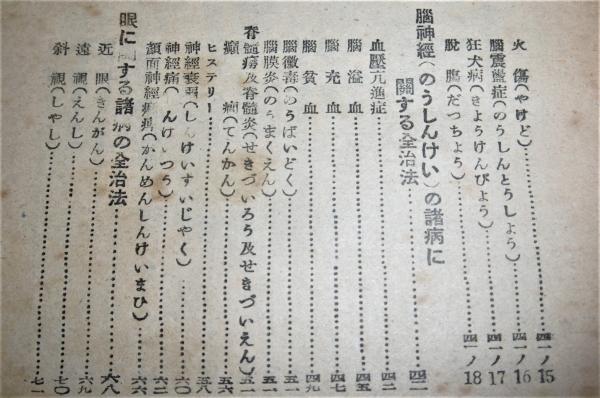 火傷(やけど)……四一ノ15
腦震盪症(のうしんとうしよう)……四一ノ16
狂犬病(きようけんびよう)……四一ノ17
脫膓(だつちよう)……四一ノ18
腦神經(のうしんけい)の諸病に
關する全治法……四二
血壓亢進症……四二
腦溢血……四五
腦充血……四七
腦貧血……四九
腦黴毒(のうばいどく)……五一
腦膜炎(のうまくえん)……五一
脊髓癆及脊髓炎(せきづいろう及せきづいえん)……五一
癲癇(てんかん)……五六
ヒステリー……五八
神經衰弱(しんけいすいじやく)……六〇
神經痛(んけいつう)……六二
顏面神經痲痺(かんめんしんけいまひ)……六六
眼に關する諸病の全治法……六八
近眼(きんがん)……六八
遠視(えんし)……六九
斜視(しやし)……七〇
七一